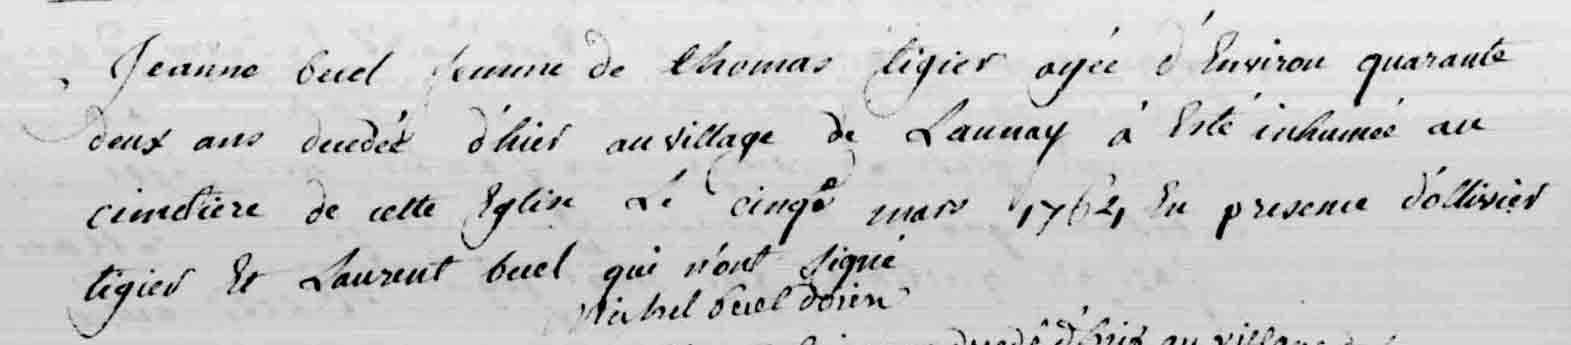 Jeanne buel femme de thomas tigier agée d'Environ quarante
deux ans decedée d'hier au village de Launay à Esté inhumée au
cimetiere de cette Eglise Le cinq mars 1762, En presence d'ollivier
tigier Et Laurent buel qui n'ont signé
Michel buel
d'hier au village